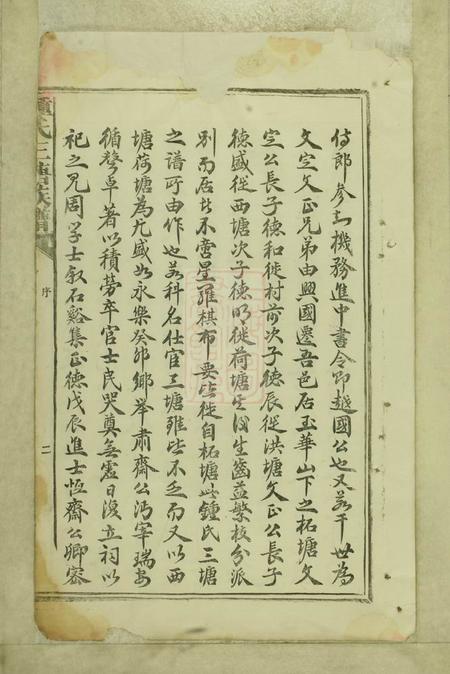 侍郎參知機務進中書令即越國公也又若干世為
文定文正兄弟由興國遷吾邑居玉華山下之柘塘文
定公長子德和徙村前次子德辰從洪塘文正公長子
德盛從西塘次子德明徙荷塘生齒益繁枝分派
別而居此不啻星羅棋布要皆從自柘塘此鍾氏三塘
之譜所由作也若科名仕宦三塘雖皆不乏而又以西
塘荷塘為尤盛如永樂癸卯鄉舉肅齋公為宰瑞安
循聲卓著以積勞卒官士民哭奠無虛日後立祠以
祀之見周學士敘石谿集正德戊辰進士恆齋公卿密
氏三塘族譜
序
二